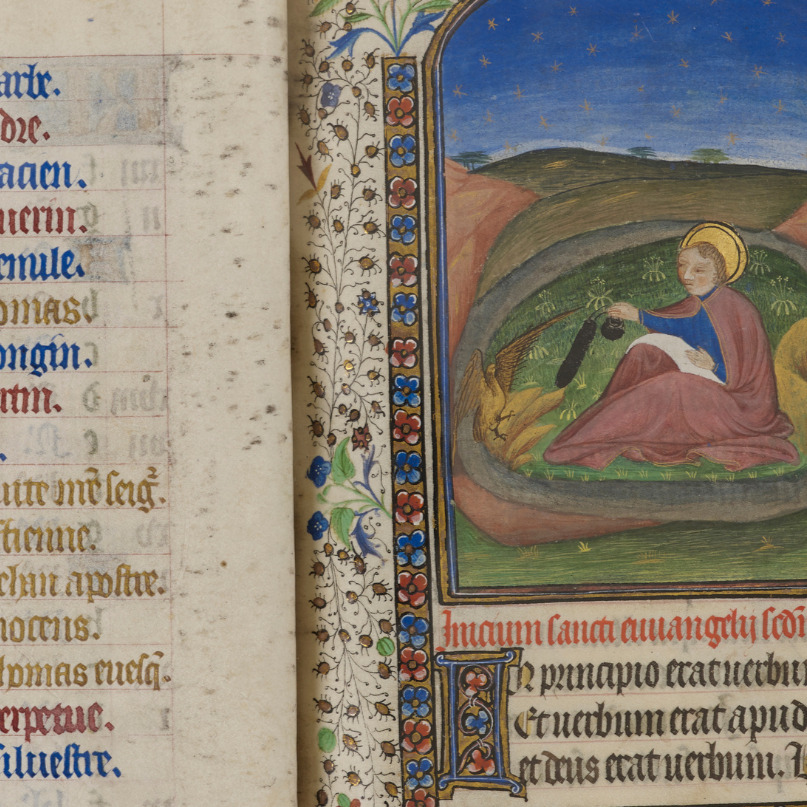 arbe.
dre.
acien.
uerin.
emule.
omas
ongin.
rtin.
uitte mr̄e seig̃.
stienne.
ehan apostre.
nocens.
homas euesq̄.
erpetue.
siluestre.
Inicium sancti euuangelij scdȝ
In principio erat uerbum
Et uerbum erat apud
et deus erat uerbum.